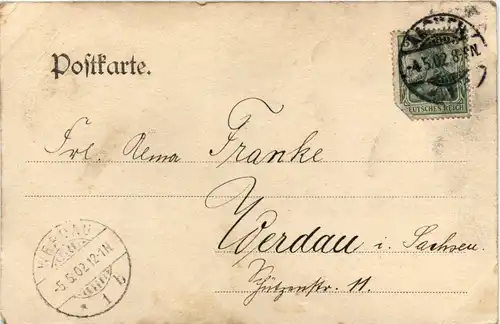 Postkarte.
-4.5.02.8-9N.
DEUTSCHES REICH
Frl. Franke
Werdau i. Sachsen.
Schützenstr. 11.
WERDAU
-5.5.02.12-1N.
* 1 b